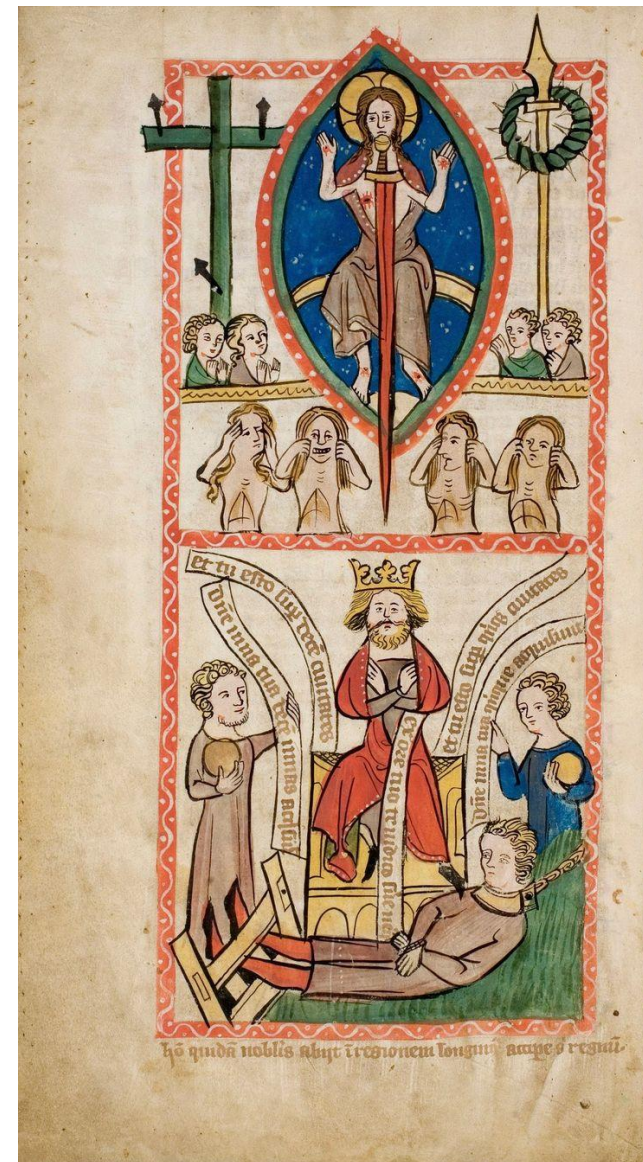 et tu esto sup decē ciuitates
Dn̄e mna tua decē mnas acqsiu
ex ore tuo te iudico
et tu esto sup qnqs ciuitates
Dn̄e mna tua qnque acquisiuit
hō quidā nobilis abijt ī regionem longinq̄ accipe s regnū.